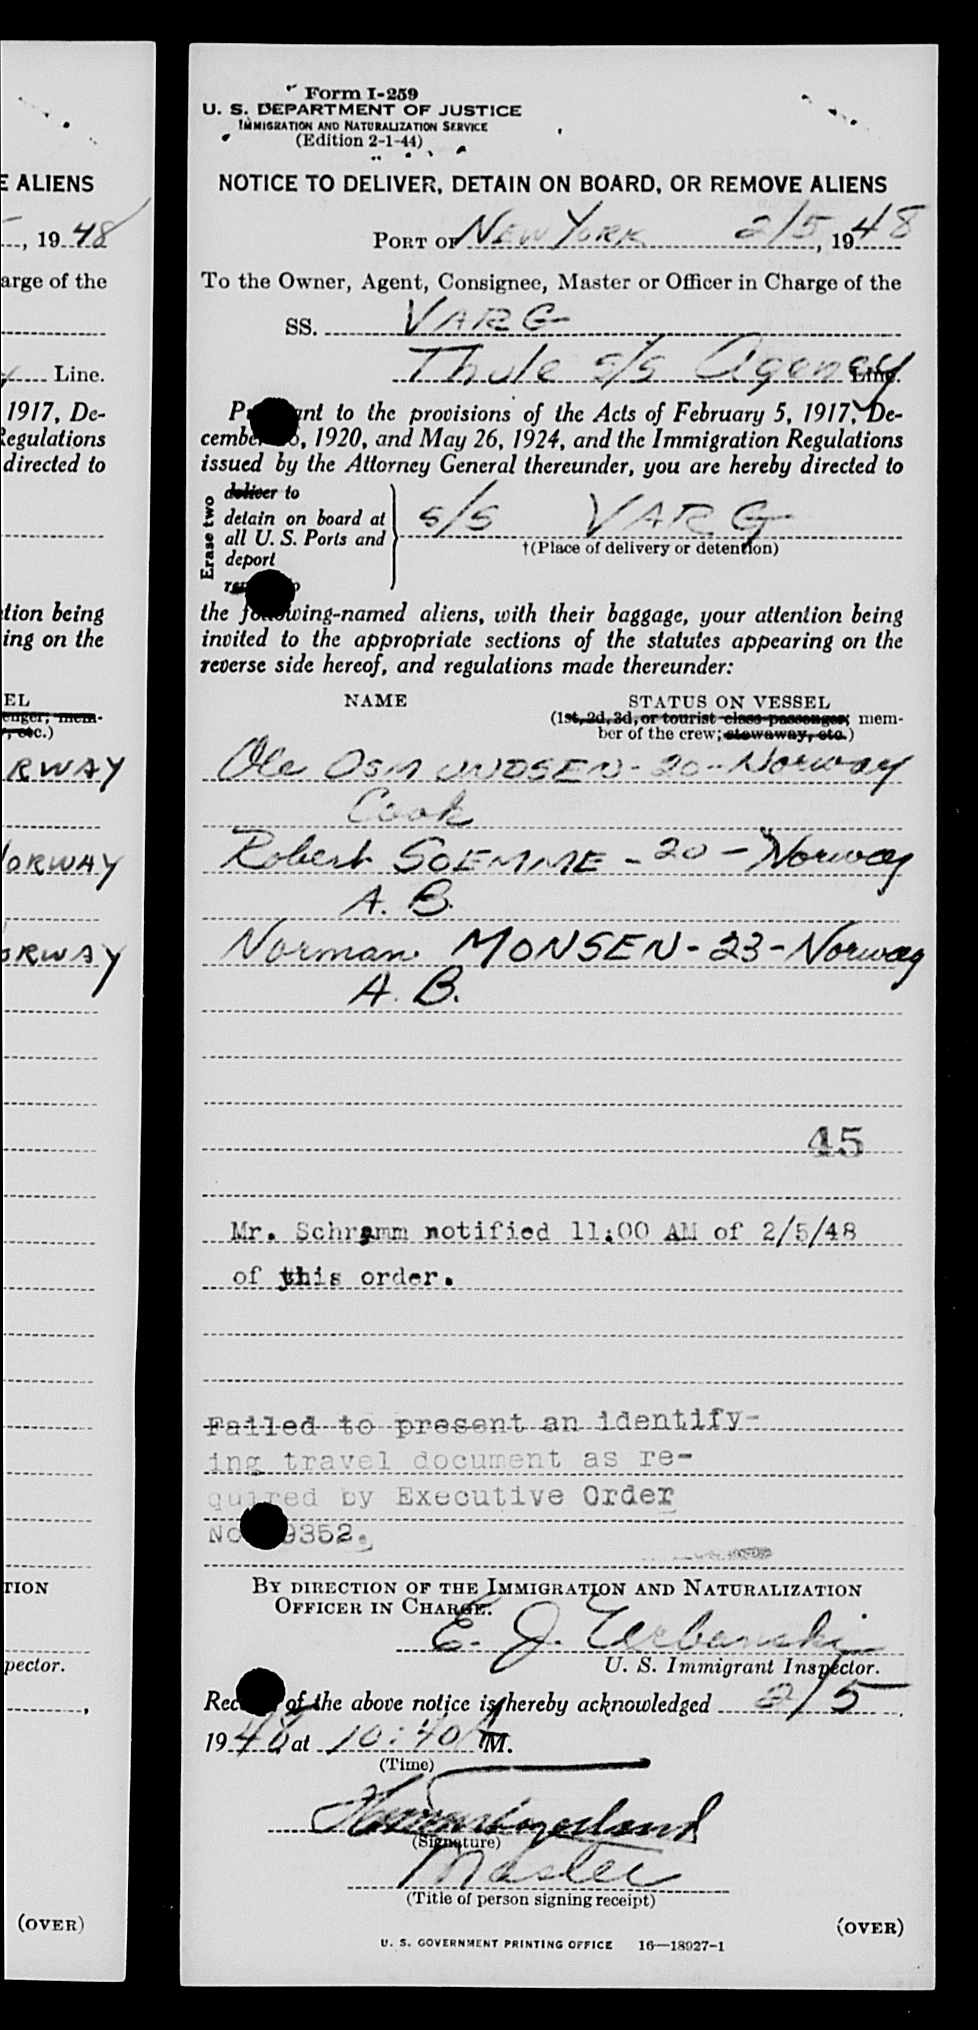 E ALIENS
, 19 48
arge of the
Line.
1917, De-
Regulations
directed to
tion being
ing on the
EL
enger; mem-
, etc.)
RWAY
NORWAY
ORWAY
TION
pector.
(OVER)
Form I-259
U. S. DEPARTMENT OF JUSTICE
IMMIGRATION AND NATURALIZATION SERVICE
(Edition 2-1-44)
NOTICE TO DELIVER, DETAIN ON BOARD, OR REMOVE ALIENS
PORT OF New York 2/5, 1948
To the Owner, Agent, Consignee, Master or Officer in Charge of the
SS. VARG
Thule s/s Agency Line.
Pursuant to the provisions of the Acts of February 5, 1917, De-
cember 26, 1920, and May 26, 1924, and the Immigration Regulations
issued by the Attorney General thereunder, you are hereby directed to
Erase two
deliver to
detain on board at
all U. S. Ports and
deport
remove to
s/s VARG
†(Place of delivery or detention)
the following-named aliens, with their baggage, your attention being
invited to the appropriate sections of the statutes appearing on the
reverse side hereof, and regulations made thereunder:
NAME STATUS ON VESSEL
(1st, 2d, 3d, or tourist class passenger; mem-
ber of the crew; stowaway, etc.)
Ole OSMUNDSEN - 20 - Norway
Cook
Robert SOEMME - 20 - Norway
A. B.
Norman MONSEN - 23 - Norway
A. B.
45
Mr. Schramm notified 11:00 AM of 2/5/48
of this order.
Failed to present an identify-
ing travel document as re-
quired by Executive Order
No. 9352.
BY DIRECTION OF THE IMMIGRATION AND NATURALIZATION
OFFICER IN CHARGE:
E. J. Urbanski
U. S. Immigrant Inspector.
Receipt of the above notice is hereby acknowledged 2/5
1948 at 10:40 A M.
(Time)
(Signature)
Master
(Title of person signing receipt)
(OVER)
U. S. GOVERNMENT PRINTING OFFICE 16—18927-1